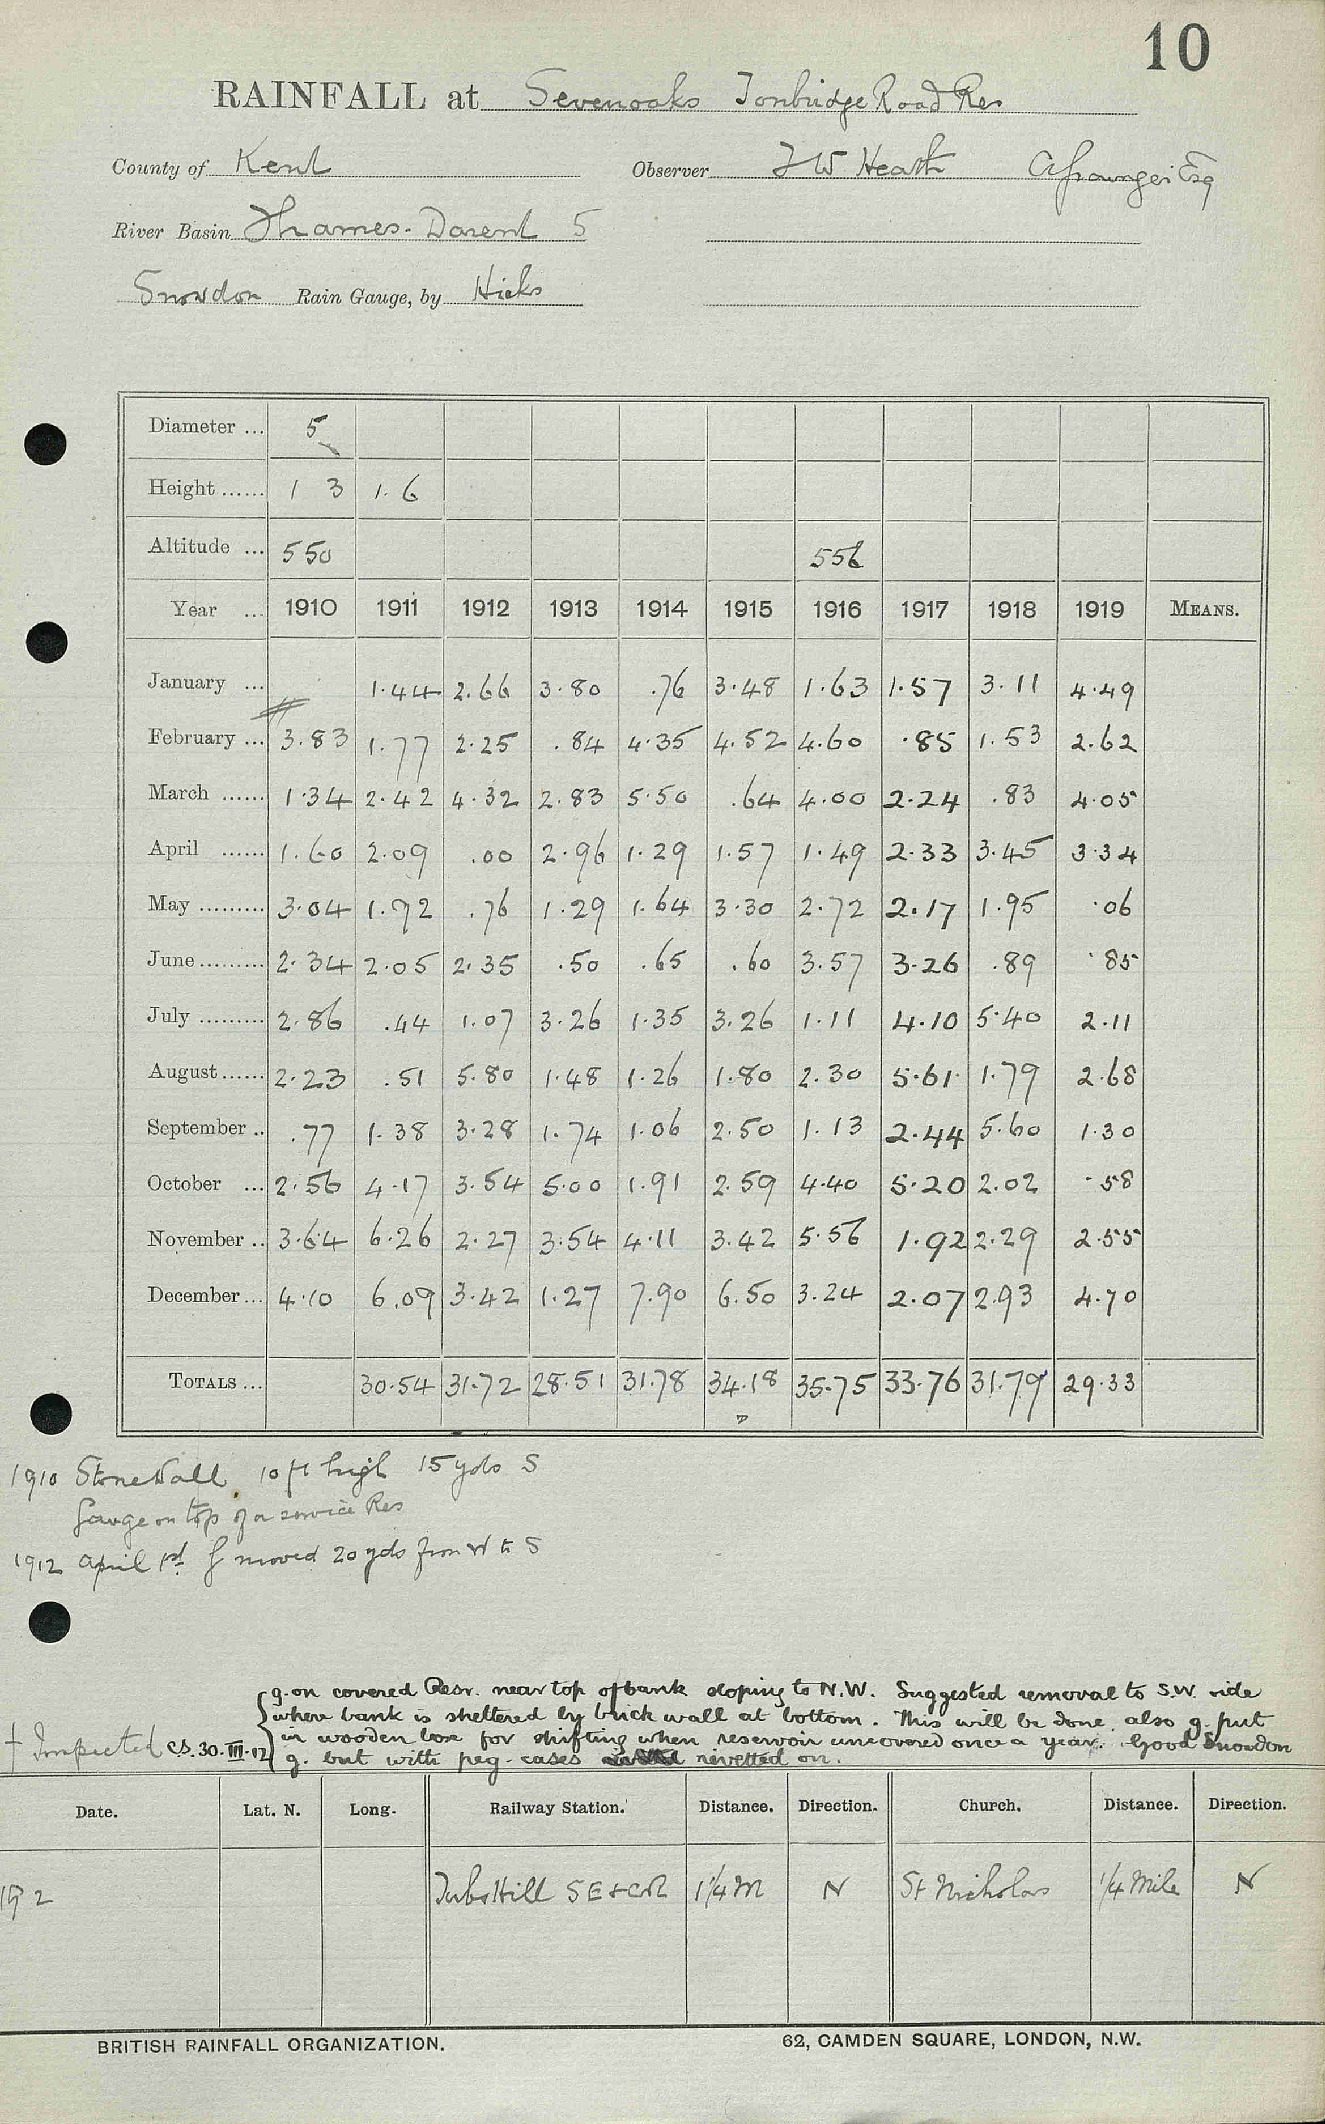 10
RAINFALL at Sevenoaks Tonbridge Road Res
County of Kent Observer J W Heath Esq
River Basin Thames. Darent 5
Snowdon Rain Gauge, by Hicks
Diameter ... 5
Height ...... 1 3 1.6
Altitude ... 550 556
Year ... 1910 1911 1912 1913 1914 1915 1916 1917 1918 1919 MEANS.
January ... 1.44 2.66 3.80 .76 3.48 1.63 1.57 3.11 4.49
February ... 3.83 1.77 2.25 .84 4.35 4.52 4.60 .85 1.53 2.62
March ...... 1.34 2.42 4.32 2.83 5.50 .64 4.00 2.24 .83 4.05
April ...... 1.60 2.09 .00 2.96 1.29 1.57 1.49 2.33 3.45 3.34
May ......... 3.04 1.92 .76 1.29 1.64 3.30 2.72 2.17 1.95 .06
June ......... 2.34 2.05 2.35 .50 .65 .60 3.57 3.26 .89 .85
July ......... 2.86 .44 1.07 3.26 1.35 3.26 1.11 4.10 5.40 2.11
August ...... 2.23 .51 5.80 1.48 1.26 1.80 2.30 5.61 1.79 2.68
September .. .77 1.38 3.28 1.74 1.06 2.50 1.13 2.44 5.60 1.30
October ... 2.56 4.17 3.54 5.00 1.91 2.59 4.40 5.20 2.02 .58
November .. 3.64 6.26 2.27 3.54 4.11 3.42 5.56 1.92 2.29 2.55
December ... 4.10 6.09 3.42 1.27 7.90 6.50 3.24 2.07 2.93 4.70
TOTALS ... 30.54 31.72 28.51 31.78 34.18 35.75 33.76 31.79 29.33
1910 Stone Wall 10 ft high 15 yds S
Gauge on top of a service Res
1912 April 1st g moved 20 yds from W to S
g. on covered Resr. near top of bank sloping to N.W. Suggested removal to S.W. side
where bank is sheltered by brick wall at bottom. This will be done, also g. put
in wooden box for shifting when reservoir uncovered once a year. Good Snowdon
† Inspected C.S. 30.III.12 g. but with peg-cases revetted on.
Date. Lat. N. Long. Railway Station. Distance. Direction. Church. Distance. Direction.
1912 Tubs Hill SE & CR 1¼ M N St Nicholas ¼ Mile N
BRITISH RAINFALL ORGANIZATION. 62, CAMDEN SQUARE, LONDON, N.W.